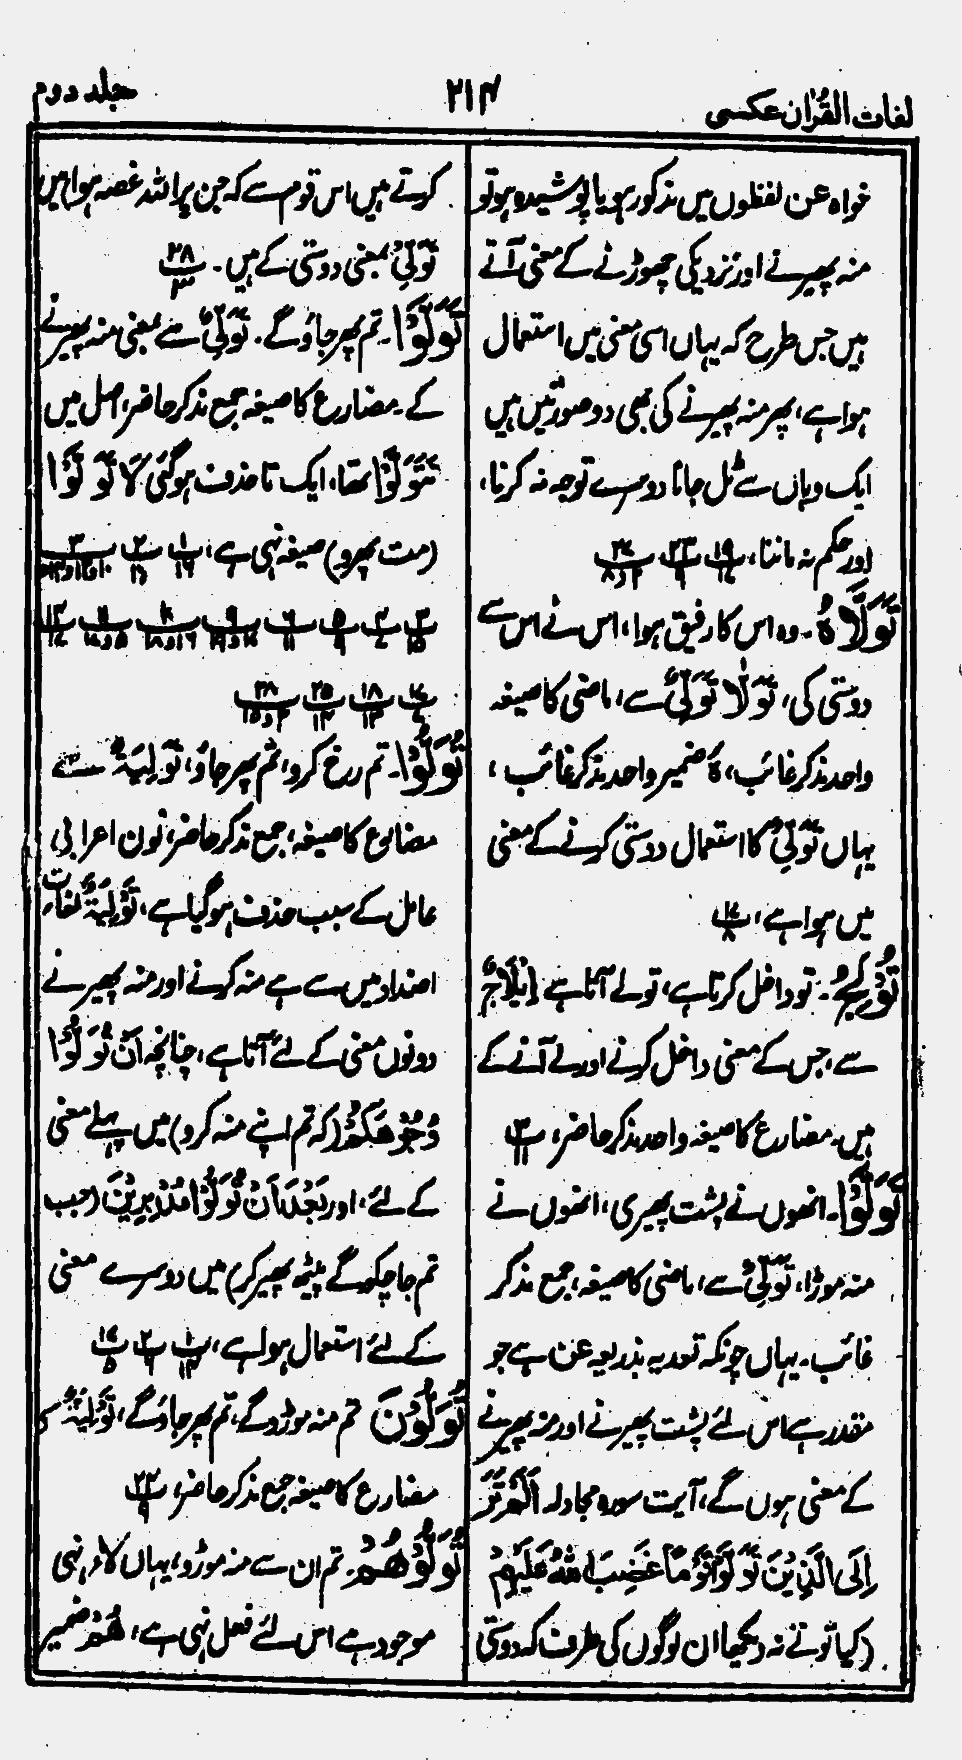 لغات القرآن عکسی
۲۱۴
جلد دوم
خواہ عن لفظوں میں مذکور ہو یا پوشیدہ ہو تو
منہ پھیرنے اور نزدیکی چھوڑنے کے معنی آتے
ہیں جس طرح کہ یہاں اسی معنی میں استعمال
ہوا ہے، پھر منہ پھیرنے کی بھی دو صورتیں ہیں
ایک وہاں سے ٹل جانا دوسرے توجہ نہ کرنا،
اور حکم نہ ماننا،
تَوَلَّاهُ۔ وہ اس کا رفیق ہوا، اس نے اس سے
دوستی کی، تَوَلّٰا تَوَلِّیْ سے، ماضی کا صیغہ
واحد مذکر غائب، ہٗ ضمیر واحد مذکر غائب،
یہاں تَوَلِّیْ کا استعمال دوستی کرنے کے معنی
میں ہوا ہے، پ ۱۷/۸
تُوْلِجُ۔ تو داخل کرتا ہے، تو لے آتا ہے اِیْلَاجٌ
سے، جس کے معنی داخل کرنے اور لے آنے کے
ہیں۔ مضارع کا صیغہ واحد مذکر حاضر، پ ۳/۱۱
تَوَلَّوْا۔ انھوں نے پشت پھیری، انھوں نے
منہ موڑا، تَوَلِّیْ سے، ماضی کا صیغہ، جمع مذکر
غائب۔ یہاں چونکہ تعدیہ بذریعہ عن ہے جو
مقدر ہے اس لئے پشت پھیرنے اور منہ پھیرنے
کے معنی ہوں گے، آیت سورہ مجادلہ اَلَمْ تَرَ
اِلَی الَّذِیْنَ تَوَلَّوْا قَوْمًا غَضِبَ اللّٰهُ عَلَیْهِمْ
(کیا تو نے نہ دیکھا ان لوگوں کی طرف کہ دوستی
کرتے ہیں اس قوم سے کہ جن پر اللہ غصہ ہوا) میں
تَوَلِّیْ بمعنی دوستی کے ہیں۔ پ ۲۸/۳
تَوَلَّوْا۔ تم پھر جاؤ گے۔ تَوَلِّیْ سے بمعنی منہ پھیرنے
کے۔ مضارع کا صیغہ جمع مذکر حاضر، اصل میں
تَتَوَلَّوْا تھا، ایک تا حذف ہو گئی لَا تَوَلَّوْا
(مت پھرو) صیغہ نہی ہے،
تُوَلُّوْا۔ تم رخ کرو، تم پھر جاؤ، تَوْلِیَةٌ سے
مضارع کا صیغہ، جمع مذکر حاضر، نون اعرابی
عامل کے سبب حذف ہو گیا ہے، تَوْلِیَةٌ لغات
اضداد میں سے ہے منہ کرنے اور منہ پھیرنے
دونوں معنی کے لئے آتا ہے، چنانچہ اَنْ تُوَلُّوْا
وُجُوْهَكُمْ (کہ تم اپنے منہ کرو) میں پہلے معنی
کے لئے، اور بَعْدَ اَنْ تُوَلُّوْا مُدْبِرِیْنَ (جب
تم جا چکو گے پیٹھ پھیر کر) میں دوسرے معنی
کے لئے استعمال ہوا ہے،
تُوَلُّوْنَ تم منہ موڑو گے، تم پھر جاؤ گے، تَوْلِیَةٌ
مضارع کا صیغہ جمع مذکر حاضر،
تُوَلُّوْهُمْ۔ تم ان سے منہ موڑو، یہاں لاء نہی
موجود ہے اس لئے فعل نہی ہے، هُمْ ضمیر